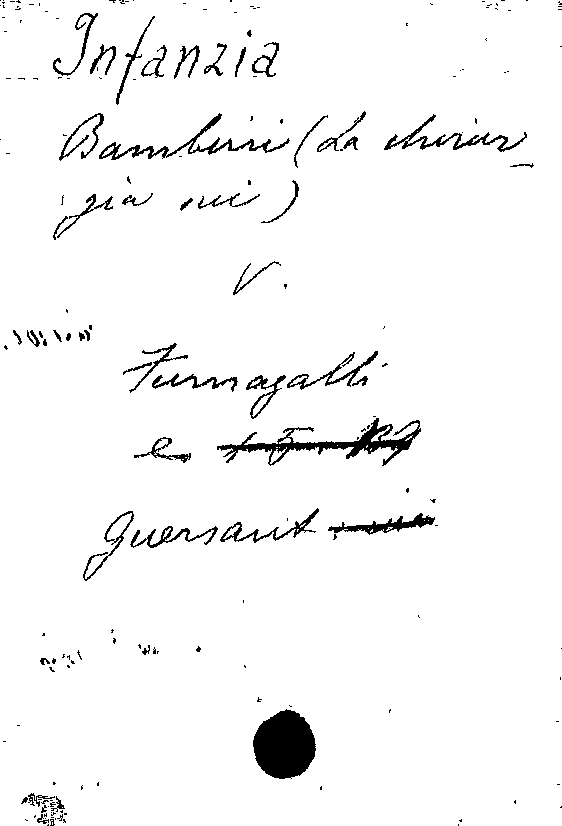 Infanzia
Bambini (La chirur-
gia nei)
V.
Fumagalli
e
Guersant